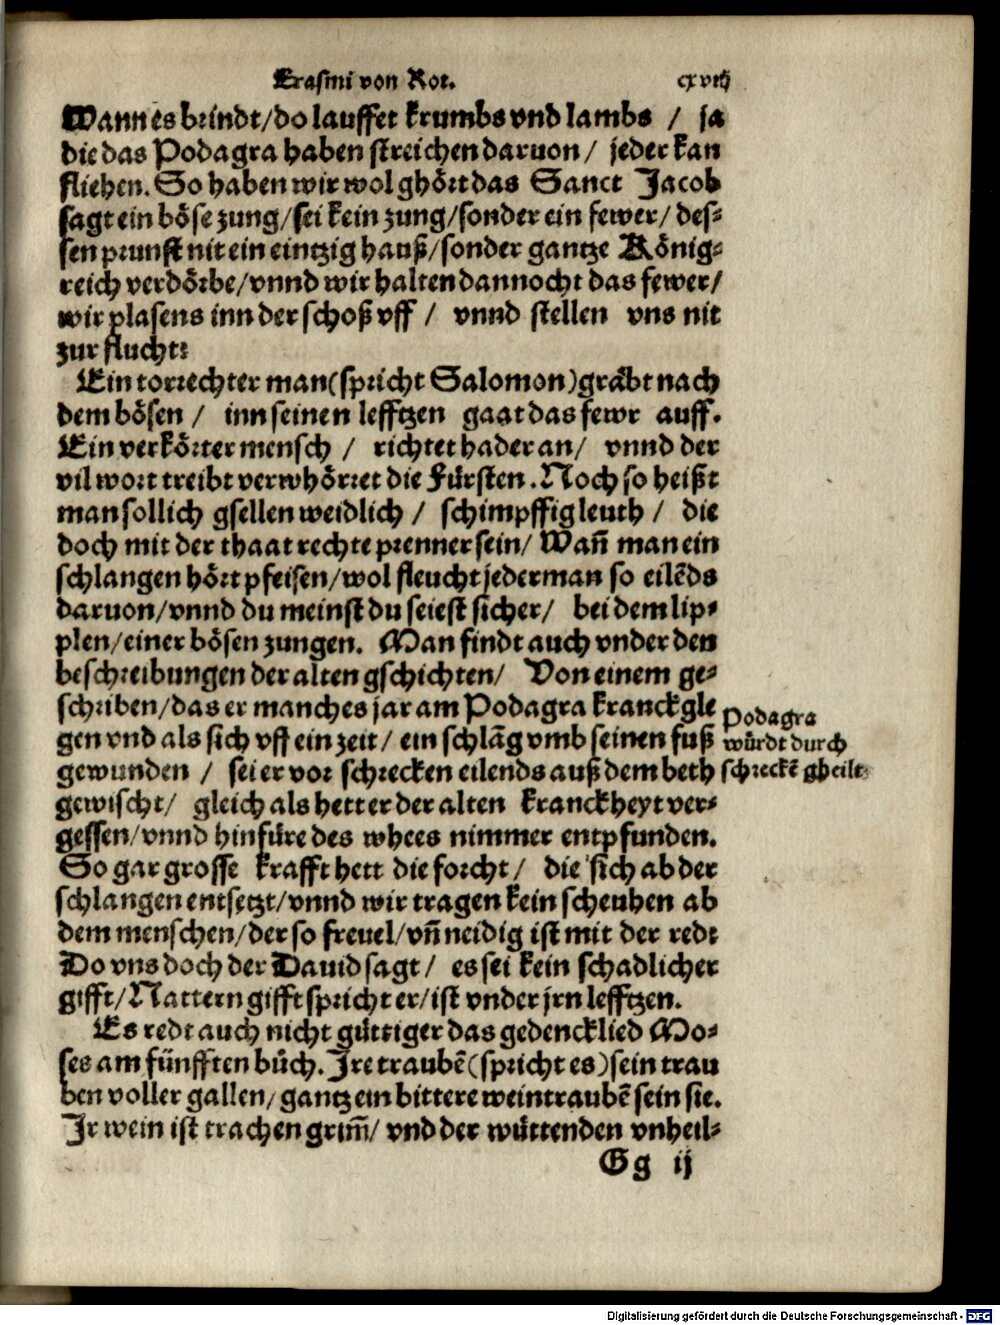 Erasmi von Rot. cxviij
Wann es brindt/do lauffet krumbs vnd lambs / ja
die das Podagra haben streichen daruon / jeder kan
fliehen. So haben wir wol ghört das Sanct Jacob
sagt ein böse zung/sei kein zung/sonder ein fewer/ des⸗
sen prunst nit ein eintzig hauß/sonder gantze König⸗
reich verdörbe/vnnd wir halten dannocht das fewer/
wir plasens inn der schoß vff / vnnd stellen vns nit
zur flucht?
Ein torrechter man(spricht Salomon)gräbt nach
dem bösen / inn seinen lefftzen gaat das fewr auff.
Ein verkörter mensch / richtet hader an/ vnnd der
vil wort treibt verwhörret die Fürsten. Noch so heißt
man sollich gsellen weidlich / schimpffig leuth / die
doch mit der thaat rechte prenner sein/ Wañ man ein
schlangen hört pfeisen/wol fleucht jederman so eilēds
daruon/vnnd du meinst du seiest sicher/ bei dem lip⸗
plen/einer bösen zungen. Man findt auch vnder den
beschreibungen der alten gschichten/ Von einem ge⸗
schriben/das er manches jar am Podagra kranck gle
gen vnd als sich vff ein zeit/ ein schlāg vmb seinen fuß
gewunden / sei er vor schrecken eilends auß dem beth
gewischt/ gleich als hett er der alten kranckheyt ver⸗
gessen/vnnd hinfüre des whees nimmer entpfunden.
So gar grosse krafft hett die forcht/ die sich ab der
schlangen entsetzt/vnnd wir tragen kein scheuhen ab
dem menschen/der so freuel/vñ neidig ist mit der red?
Do vns doch der Dauid sagt / es sei kein schadlicher
gifft/Nattern gifft spricht er/ist vnder jrn lefftzen.
Es redt auch nicht güttiger das gedencklied Mo⸗
ses am fünfften bůch. Ire traubē(spricht es)sein trau
ben voller gallen/gantz ein bittere weintraubē sein sie.
Ir wein ist trachen grim̄/ vnd der wüttenden vnheil⸗
Gg ij
Podagra
würdt durch
schreckē gheilt.
Digitalisierung gefördert durch die Deutsche Forschungsgemeinschaft - DFG